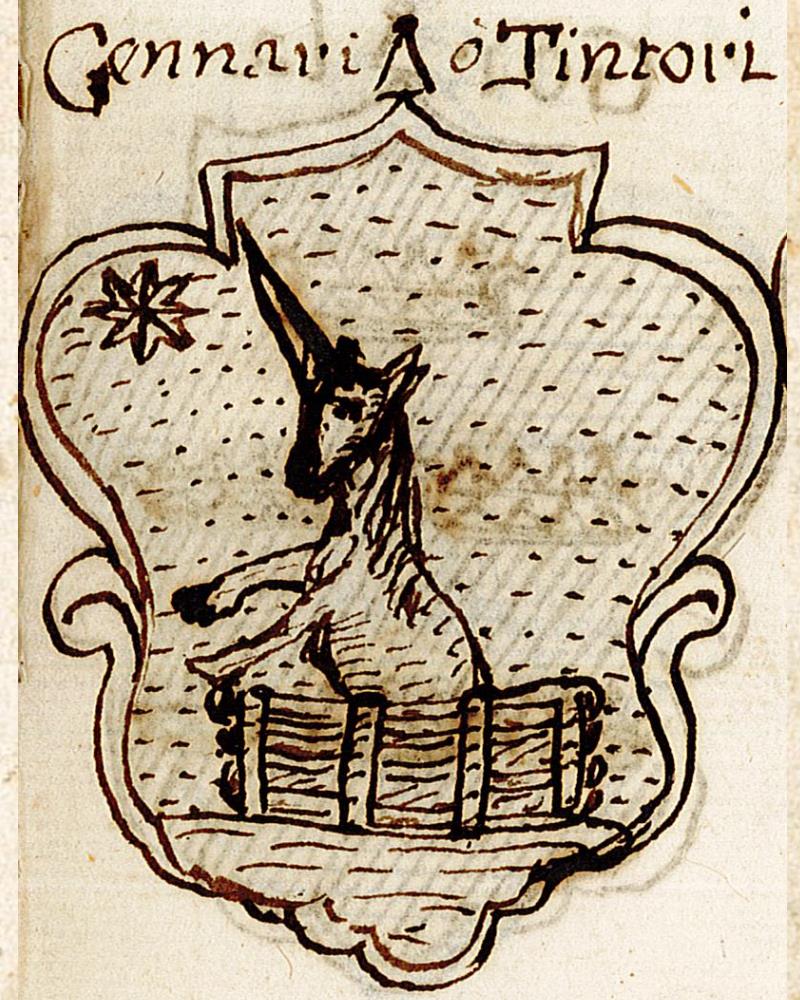 Gennari ò Tintori